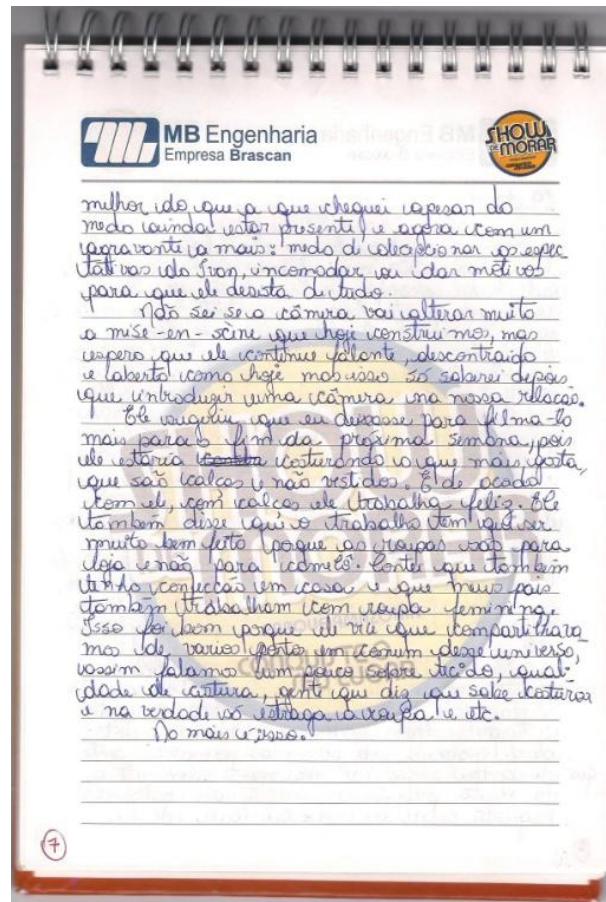 MB Engenharia
Empresa Brascan
SHOW
DE MORAR
melhor do que a que cheguei apesar do
medo ainda estar presente e agora com um
agravante a mais: medo di decepcionar as espec
tativas do Ivan, incomodar ou dar motivos
para que ele desista de tudo.
Não sei se a câmera vai alterar muito
a mise-en-scène que hoje construimos, mas
espero que ele continue falante, descontraido
e aberto como hoje mas isso só saberei depois
que introduzir uma câmera na nossa relação.
Ele sugeriu que eu deixasse para filma-lo
mais para o fim da próxima semana, pois
ele estaria costurando o que mais gosta,
que são calças e não vestidos. E de acordo
com ele, com calças ele trabalha feliz. Ele
também disse que o trabalho tem que ser
muito bem feito porque as roupas vão para
loja e não para camelô. Contei que também
tenho confecção em casa e que meus pais
também trabalham com roupa feminina.
Isso foi bom porque ele viu que compartilháva
mos de varios pontos em comum desse universo,
assim falamos um pouco sobre tecido, quali
dade de costura, gente que diz que sabe costurar
e na verdade só estraga a roupa e etc.
No mais é isso.
SHOW
DE MORAR
CONQUISTE O
SEU LUGAR
7